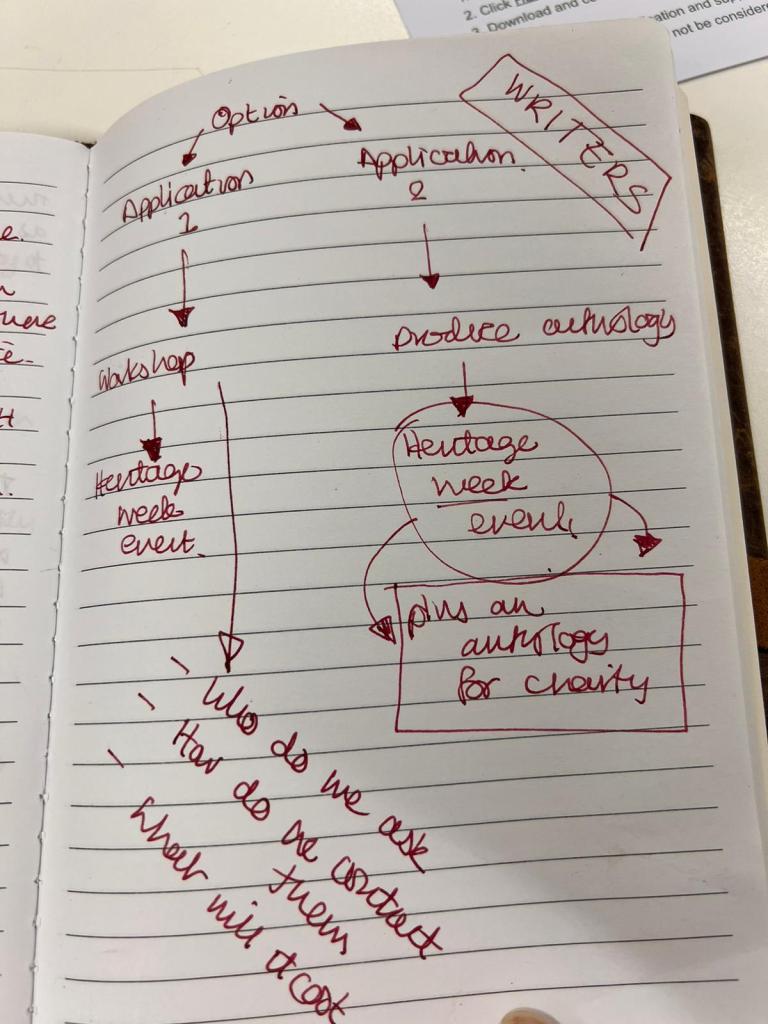 2. Click
3. Download and
ation and
not be considere
WRITERS
Option
Application
1
Application.
2
Workshop
produce anthology
Heritage
week
event.
Heritage
week
event.
plus an
anthology
for charity
\ Who do we ask
\ How do we contact
them
\ What will it cost
e.